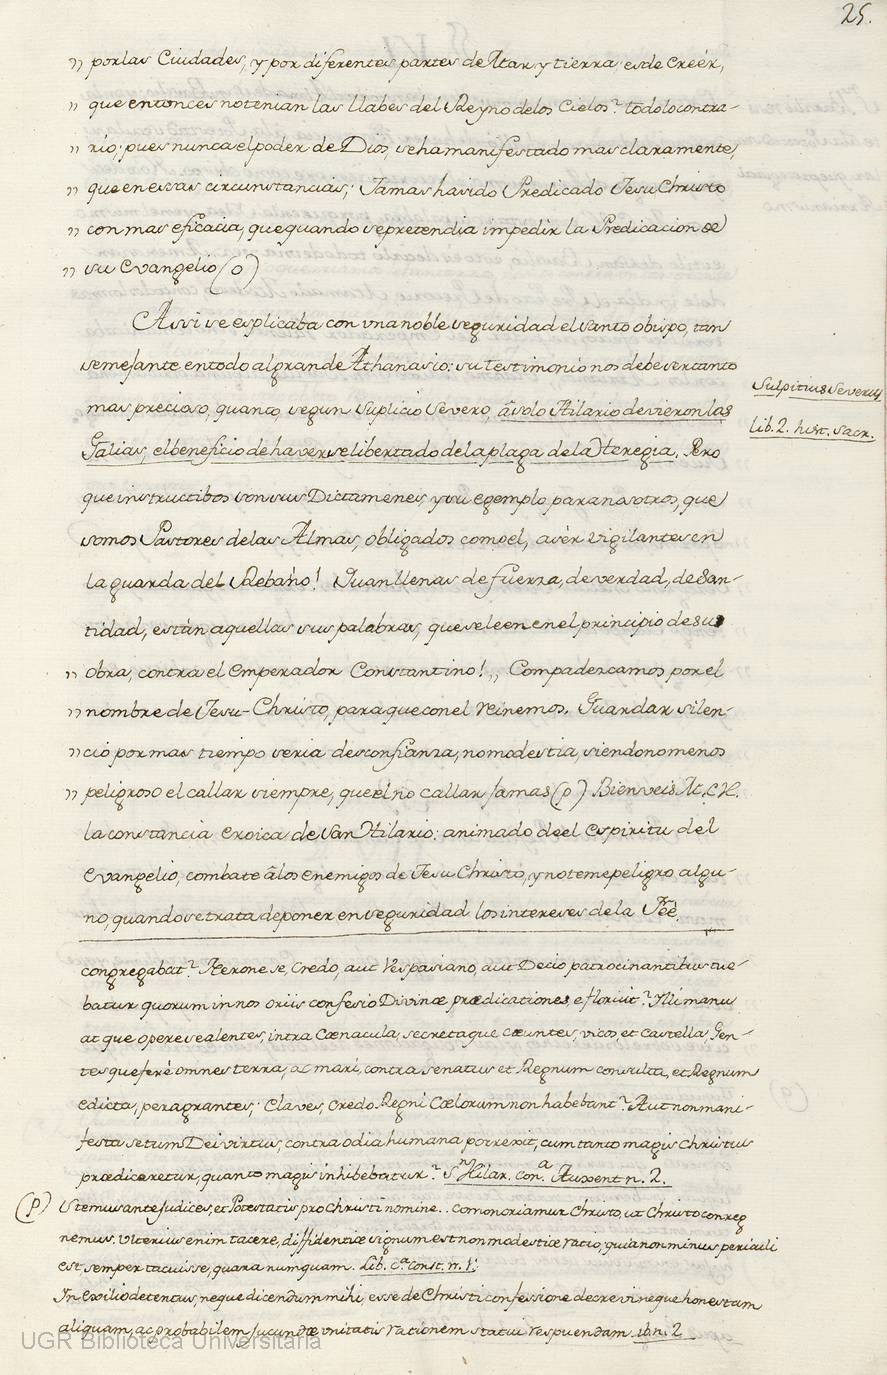 25.
,, por las Ciudades, y por diferentes partes de Mar y tierra es de Creér,
,, que entonces no tenian las llabes del Reyno de los Cielos? todo lo contra-
,, rio; pues nunca el poder de Dios, se ha manifestado mas claramente,
,, que en esas circunstancias; Jamas ha sido Predicado Jesu Christo
,, con mas eficacia, que quando se pretendia impedir la Predicacion de
,, su Evangelio (o)
Assi se esplicaba con una noble seguridad el santo obispo, tan
semejante en todo al grande Athanasio: su testimonio nos debe ser tanto
mas precioso, quanto, segun Suplicio Severo, â solo Hilario devieron las
Galias, el beneficio de haverse libertado de la plaga de la Heregia. Pero
que instructibos son sus Dictamenes, y su egemplo para nosotros, que
somos Pastores de las Almas, obligados como el, a sér vigilantes en
la guarda del Rebaño! Quan llenas de fuerza, de verdad, de San-
tidad, están aquellas sus palabras, que se leen en el principio de su
,, obra, contra el Emperador Constantino! ,, Compadezcamos por el
,, nombre de Jesu-Christo, para que con el reinemos. Guardar silen-
,, cio por mas tiempo seria desconfianza, no modestia, siendo no menos
,, peligroso el callar siempre, que el no callar jamas (p) Bien veis M. C. H.
la constancia eroica de San Hilario: animado de el Espiritu del
Evangelio, combate â los enemigos de Jesu Christo, y no teme peligro algu-
no, quando se trata de poner en seguridad los intereses de la Feé.
Sulpitius Severus
lib. 2. hist. Sacr.
congregabat? Nerone se, credo, aut Vespasiano, aut Decio patrocinantibus tue-
batur quorum in nos oriis confesio Divinæ prædicationes efloriut? Illi manu
at que opere se alentes, intra Cœnacula, secretaque cœuntes, vicos, et Castella Gen-
tes que feré omnes terra, ac mari, contra senatus et Regnum consulta, et Regnum
edicta, peragrantes; Claves, credo Regni Cœlorum non habebant? Aut non mani-
festa se tum Dei virtus, contra odia humana porrexit, cum tanto magis Christus
prædicaretur, quanto magis inhibebatur? Sn. Hilar. con.a Auxent n. 2.
(p) Stemus ante Judices, et Potestatis pro Christi nomine.. comoriamur Christo, ut Christo con reg
nemus. Ulterius enim tacere, diffidentiæ signum est non modestiæ ratio, quia non minus periculi
est, semper tacuisse, quara numquam. Lib. c.a const. n. 1.
In exilio detentus, neque dicendum mihi, esse de Christi confessione decrevi neque honestam
aliquam, ac probabilem jucundæ unitatis rationem statui respuendam. ib. n. 2
UGR Biblioteca Universitaria